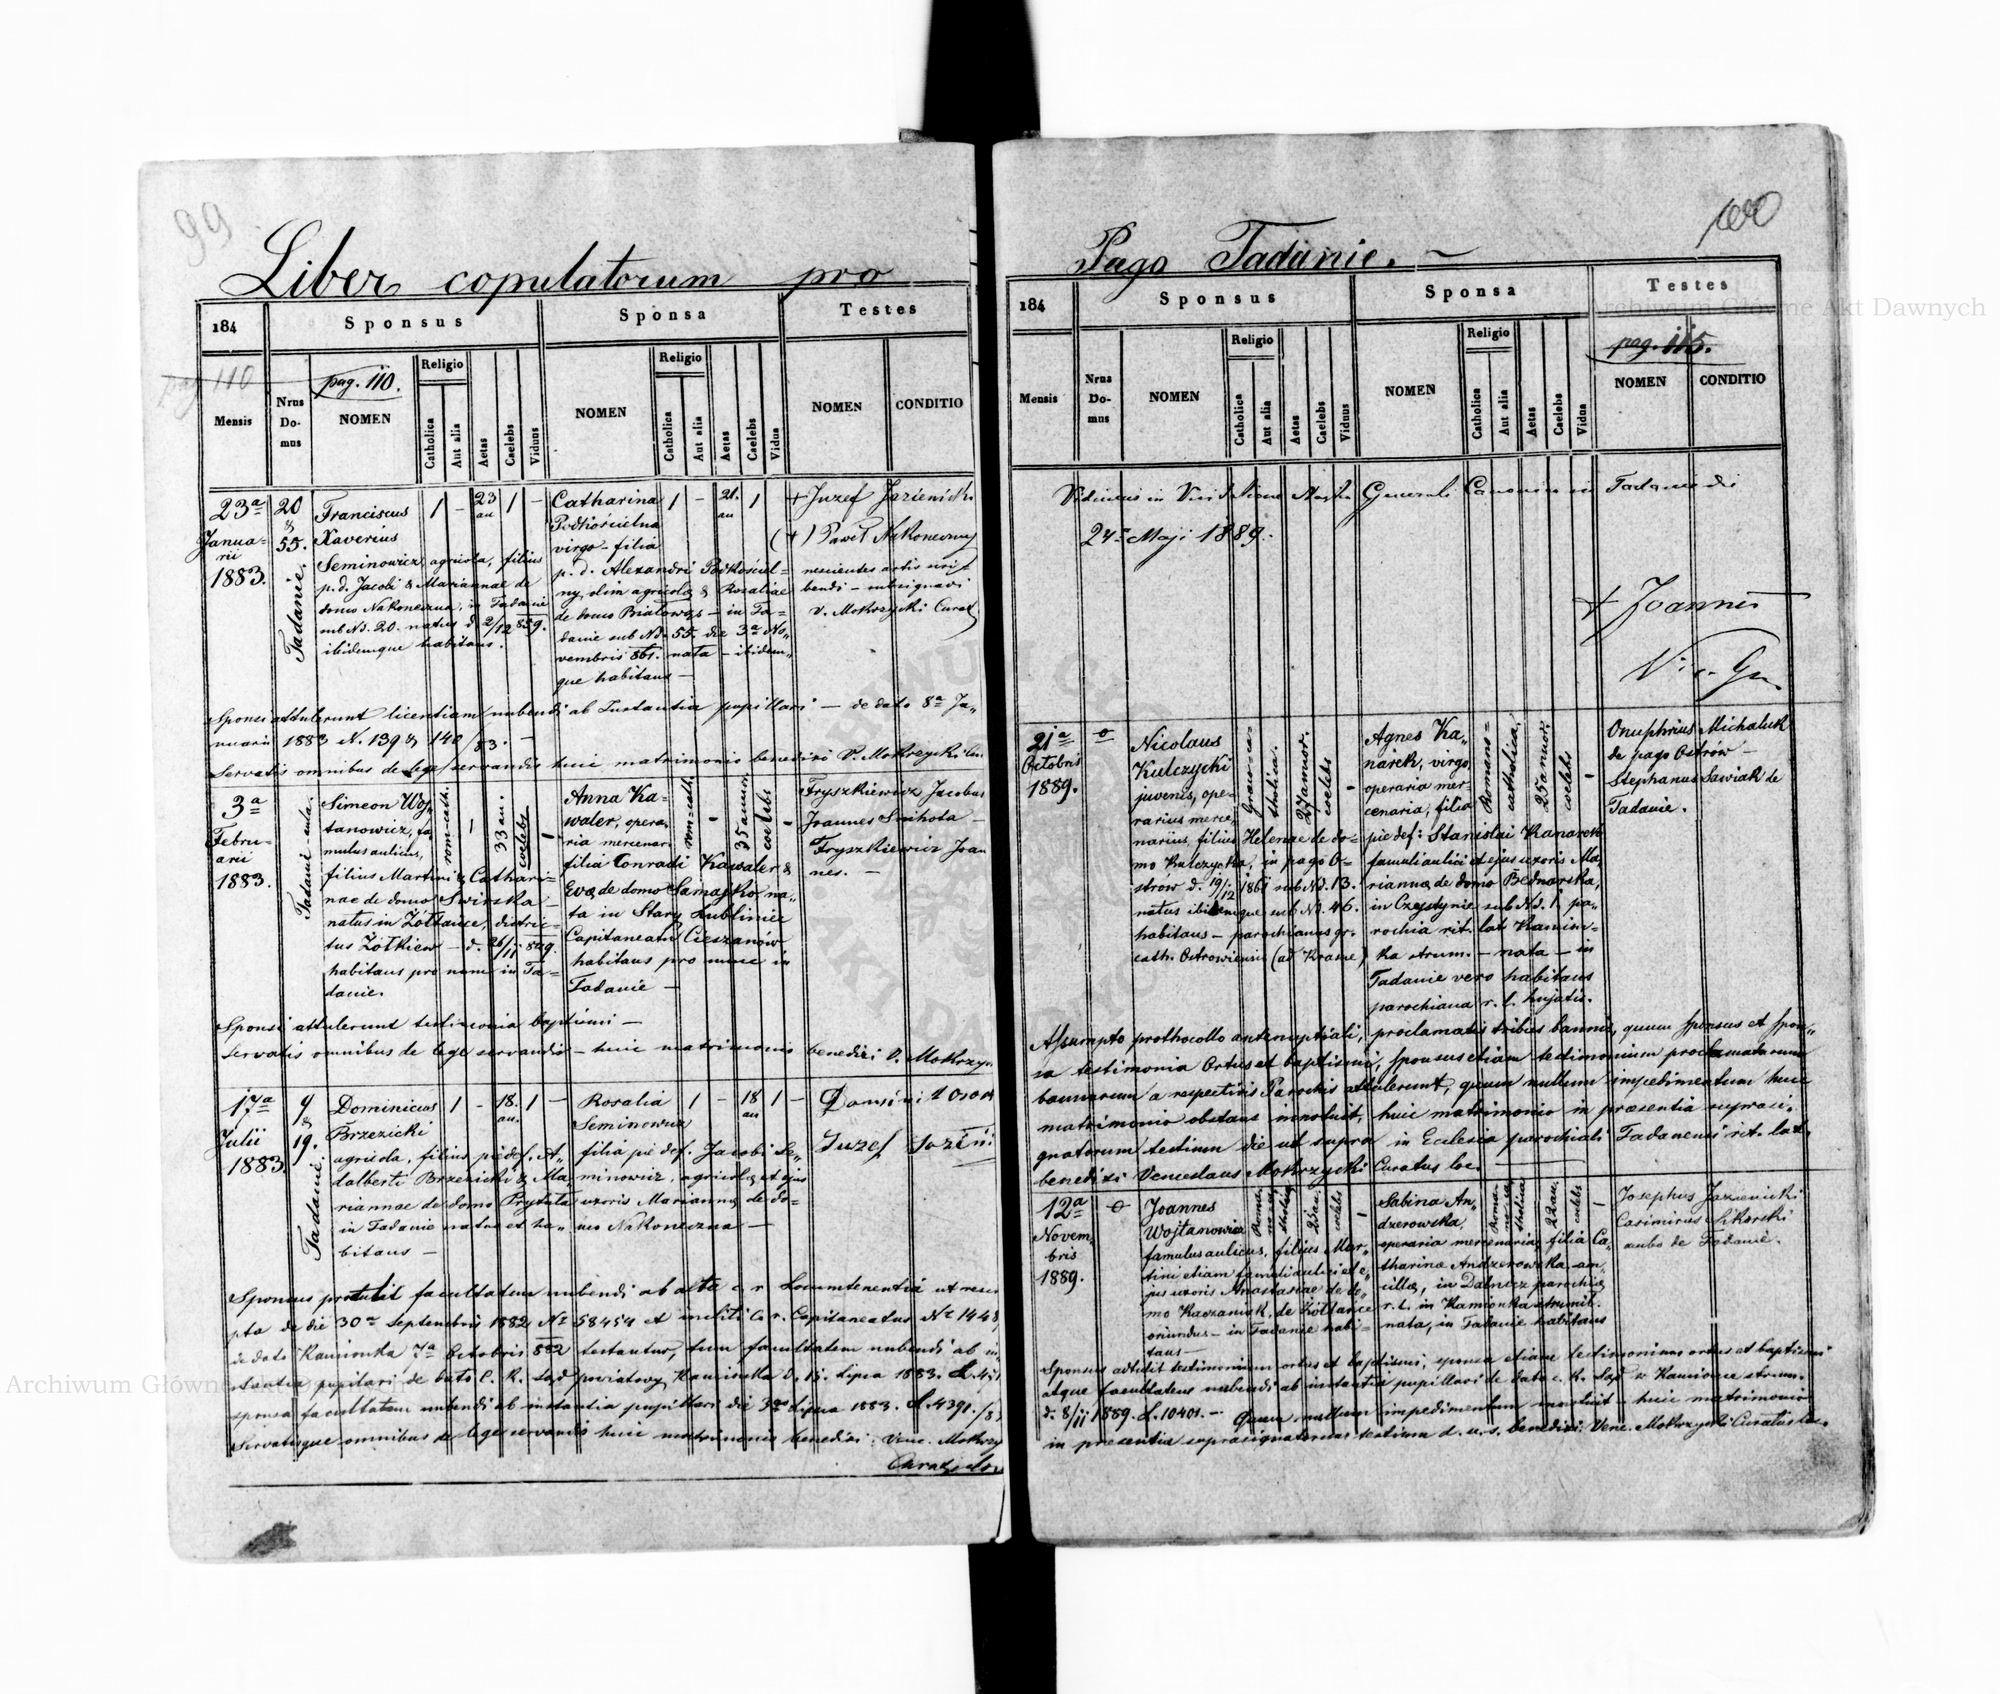 99
Liber copulatorum pro
184
Sponsus
Sponsa
Testes
pag 110
pag. 110.
Mensis
Nrus Do-mus
NOMEN
Religio
Catholica
Aut alia
Aetas
Caelebs
Viduus
NOMEN
Religio
Catholica
Aut alia
Aetas
Caelebs
Vidua
NOMEN
CONDITIO
23ª
Janua-
rii
1883.
20
&
55.
Tadanie.
Franciscus
Xaverius
Seminowicz, agricola, filius
p. d. Jacobi & Mariannae de
domo Nakoneczna, in Tadanie
sub Nd. 20. natus d. 2/12 859.
ibidemque habitans.
1 - 23 an 1 -
Catharina
Podkościelna
virgo - filia
p. d. Alexandri Podkościel-
ny, olim agricolę & Rosaliae
de domo Białowąs - in Ta-
danie sub Nd. 55. die 3ª No„
vembris 861. nata - ibidem„
que habitans -
1 - 21. an 1
+ Juzef Jazienicki
(+) Paweł Nakoneczny
nescientes artis scri-
bendi - subsignavi
V. Mokrzycki Curat
Sponsi attulerunt licentiam nubendi ab Instantia pupillari - de dato 8ª Ja„
nuarii 1883 N. 139 & 140/83. -
Servatis omnibus de lege servandis huic matrimonio benedixi V. Mokrzycki Cur
3ª
Febru-
arii
1883.
Tadanie - aula.
Simeon Woj„
tanowicz, fa
mulus aulicus,
filius Martini & Cathari-
nae de domo Swirska -
natus in Żółtańce, distric-
tus Żółkiew - d. 26/11 849.
habitans pro nunc in Ta-
danie.
rom-cath.
33 an.
coelebs
Anna Ka-
waler, opera-
ria mercenar.
filia Conradi Kawaler &
Evę de domo Samajko, na-
ta in Stary Lubliniec
Capitaneatu Cieszanów
habitans pro nunc in
Tadanie -
rom-cath.
35 annor.
coelebs
Fryszkiewicz Jacobus
Joannes Snihota -
Fryszkiewicz Joan
nes. -
Sponsi attulerunt testimonia baptismi -
Servatis omnibus de lege servandis - huic matrimonio benedixi V. Mokrzyc
17ª
Julii
1883.
9
&
19.
Tadanie
Dominicus
Brzezicki
agricola, filius piedef. A-
dalberti Brzezicki & Ma-
riannae de domo Prytula
in Tadanie natus et ha-
bitans -
1 - 18. an. 1 -
Rosalia
Seminowicz
filia pie def. Jacobi Se„
minowicz, agricolę et ejus
uxoris Mariannę de do-
mo Nakoneczna -
1 - 18 an 1 -
Juzef
Sponsus protulit facultatem nubendi ab alta c. r. Locumtenentia ut rescri
pto de die 30ª Septembris 1882 Nº 58454 et incliti C. r. Capitaneatus Nº 1448
de dato Kamionka 7ª Octobris 882 testantur, tum facultatem nubendi ab in„
stantia pupilari de dato C. K. Sąd powiatowy Kamionka d. 15. lipca 1883. L. 451
sponsa facultatem nubendi ab instantia pupillari die 3go lipca 1883. L. 4391./83
Servatisque omnibus de lege servandis huic matrimonio benedixi. Venc. Mokrzy
100
Pago Tadanie. ~
184
Sponsus
Sponsa
Testes
pag. 115.
Mensis
Nrus Do-mus
NOMEN
Religio
Catholica
Aut alia
Aetas
Caelebs
Viduus
NOMEN
Religio
Catholica
Aut alia
Aetas
Caelebs
Vidua
NOMEN
CONDITIO
Vidimus in Visitatione Nostra Generali Canonica in Tadanie die
24ª Maji 1889.
+ Joannes
21ª
Octobris
1889.
Nicolaus
Kulczycki
juvenis, ope-
rarius merce„
narius, filius Helenae de do-
mo Kulczycka, in pago O-
strów d. 19/12 1861 sub Nd. 13.
natus ibidemque sub Nd. 46.
habitans - parochianus gr.
cath. Ostrowiensis (ad Krasne)
Graeco-ca-
tholica.
27 annor.
coelebs
Agnes Ka„
narek, virgo,
operaria mer-
cenaria, filia
pie def: Stanislai Kanarek
famuli aulici et ejus uxoris Ma„
riannę de domo Bednarska,
in Czestynie sub Nd. 1. pa„
rochia rit. lat. Kamion-
ka strum. - nata - in
Tadanie vero habitans
parochiana r. l. hujatis.
Romano-
catholica,
25 annor.
coelebs
Onuphrius Michaluk
de pago Ostrów -
Stephanus Sawiak de
Tadanie.
Assumpto prothocollo antenuptiali, proclamatis tribus bannis, quum Sponsus et Spon„
sa testimonia Ortus et baptismi, Sponsus etiam testimonium proclamatorum
bannorum a respectivis Parochis attulerunt, quum nullum impedimentum huic
matrimonio obstans innotuit, huic matrimonio in praesentia suprasi„
gnatorum testium die ut supra in Ecclesia parochiali Tadanensi rit. lat.
benedixi Venceslaus Mokrzycki Curatus loc.
12ª
Novem„
bris
1889.
Joannes
Wojtanowicz
famulus aulicus, filius Mar„
tini etiam famuli aulici et e„
jus uxoris Anastasiae de do„
mo Kaczaniuk, de Żółtańce
oriundus - in Tadanie habi-
tans -
Roma„
no-ca
tholica
25 an.
coelebs
Sabina An„
dzerowska,
operaria mercenaria, filia Ca„
tharinae Andzerowska an„
cillę, in Dalnicz parochię
r. l. in Kamionka strumil.
nata, in Tadanie habitans
Roma„
no-ca
tholica
22 an.
coelebs
Josephus Jazienicki
Casimirus Sikorski
ambo de Tadanie.
Sponsus adtulit testimonium ortus et baptismi, sponsa etiam testimonium ortus et baptismi
atque facultatem nubendi ab instantia pupillari de dato c. k. Sąd w Kamionce strum.
d. 8/11 1889. L. 10401. - Quum nullum impedimentum innotuit - huic matrimonio
in presentia suprasignatorum testium d. u. s. benedixi. Venc. Mokrzycki Curatus loc.
Archiwum Główne Akt Dawnych
Archiwum Główne Akt Dawnych